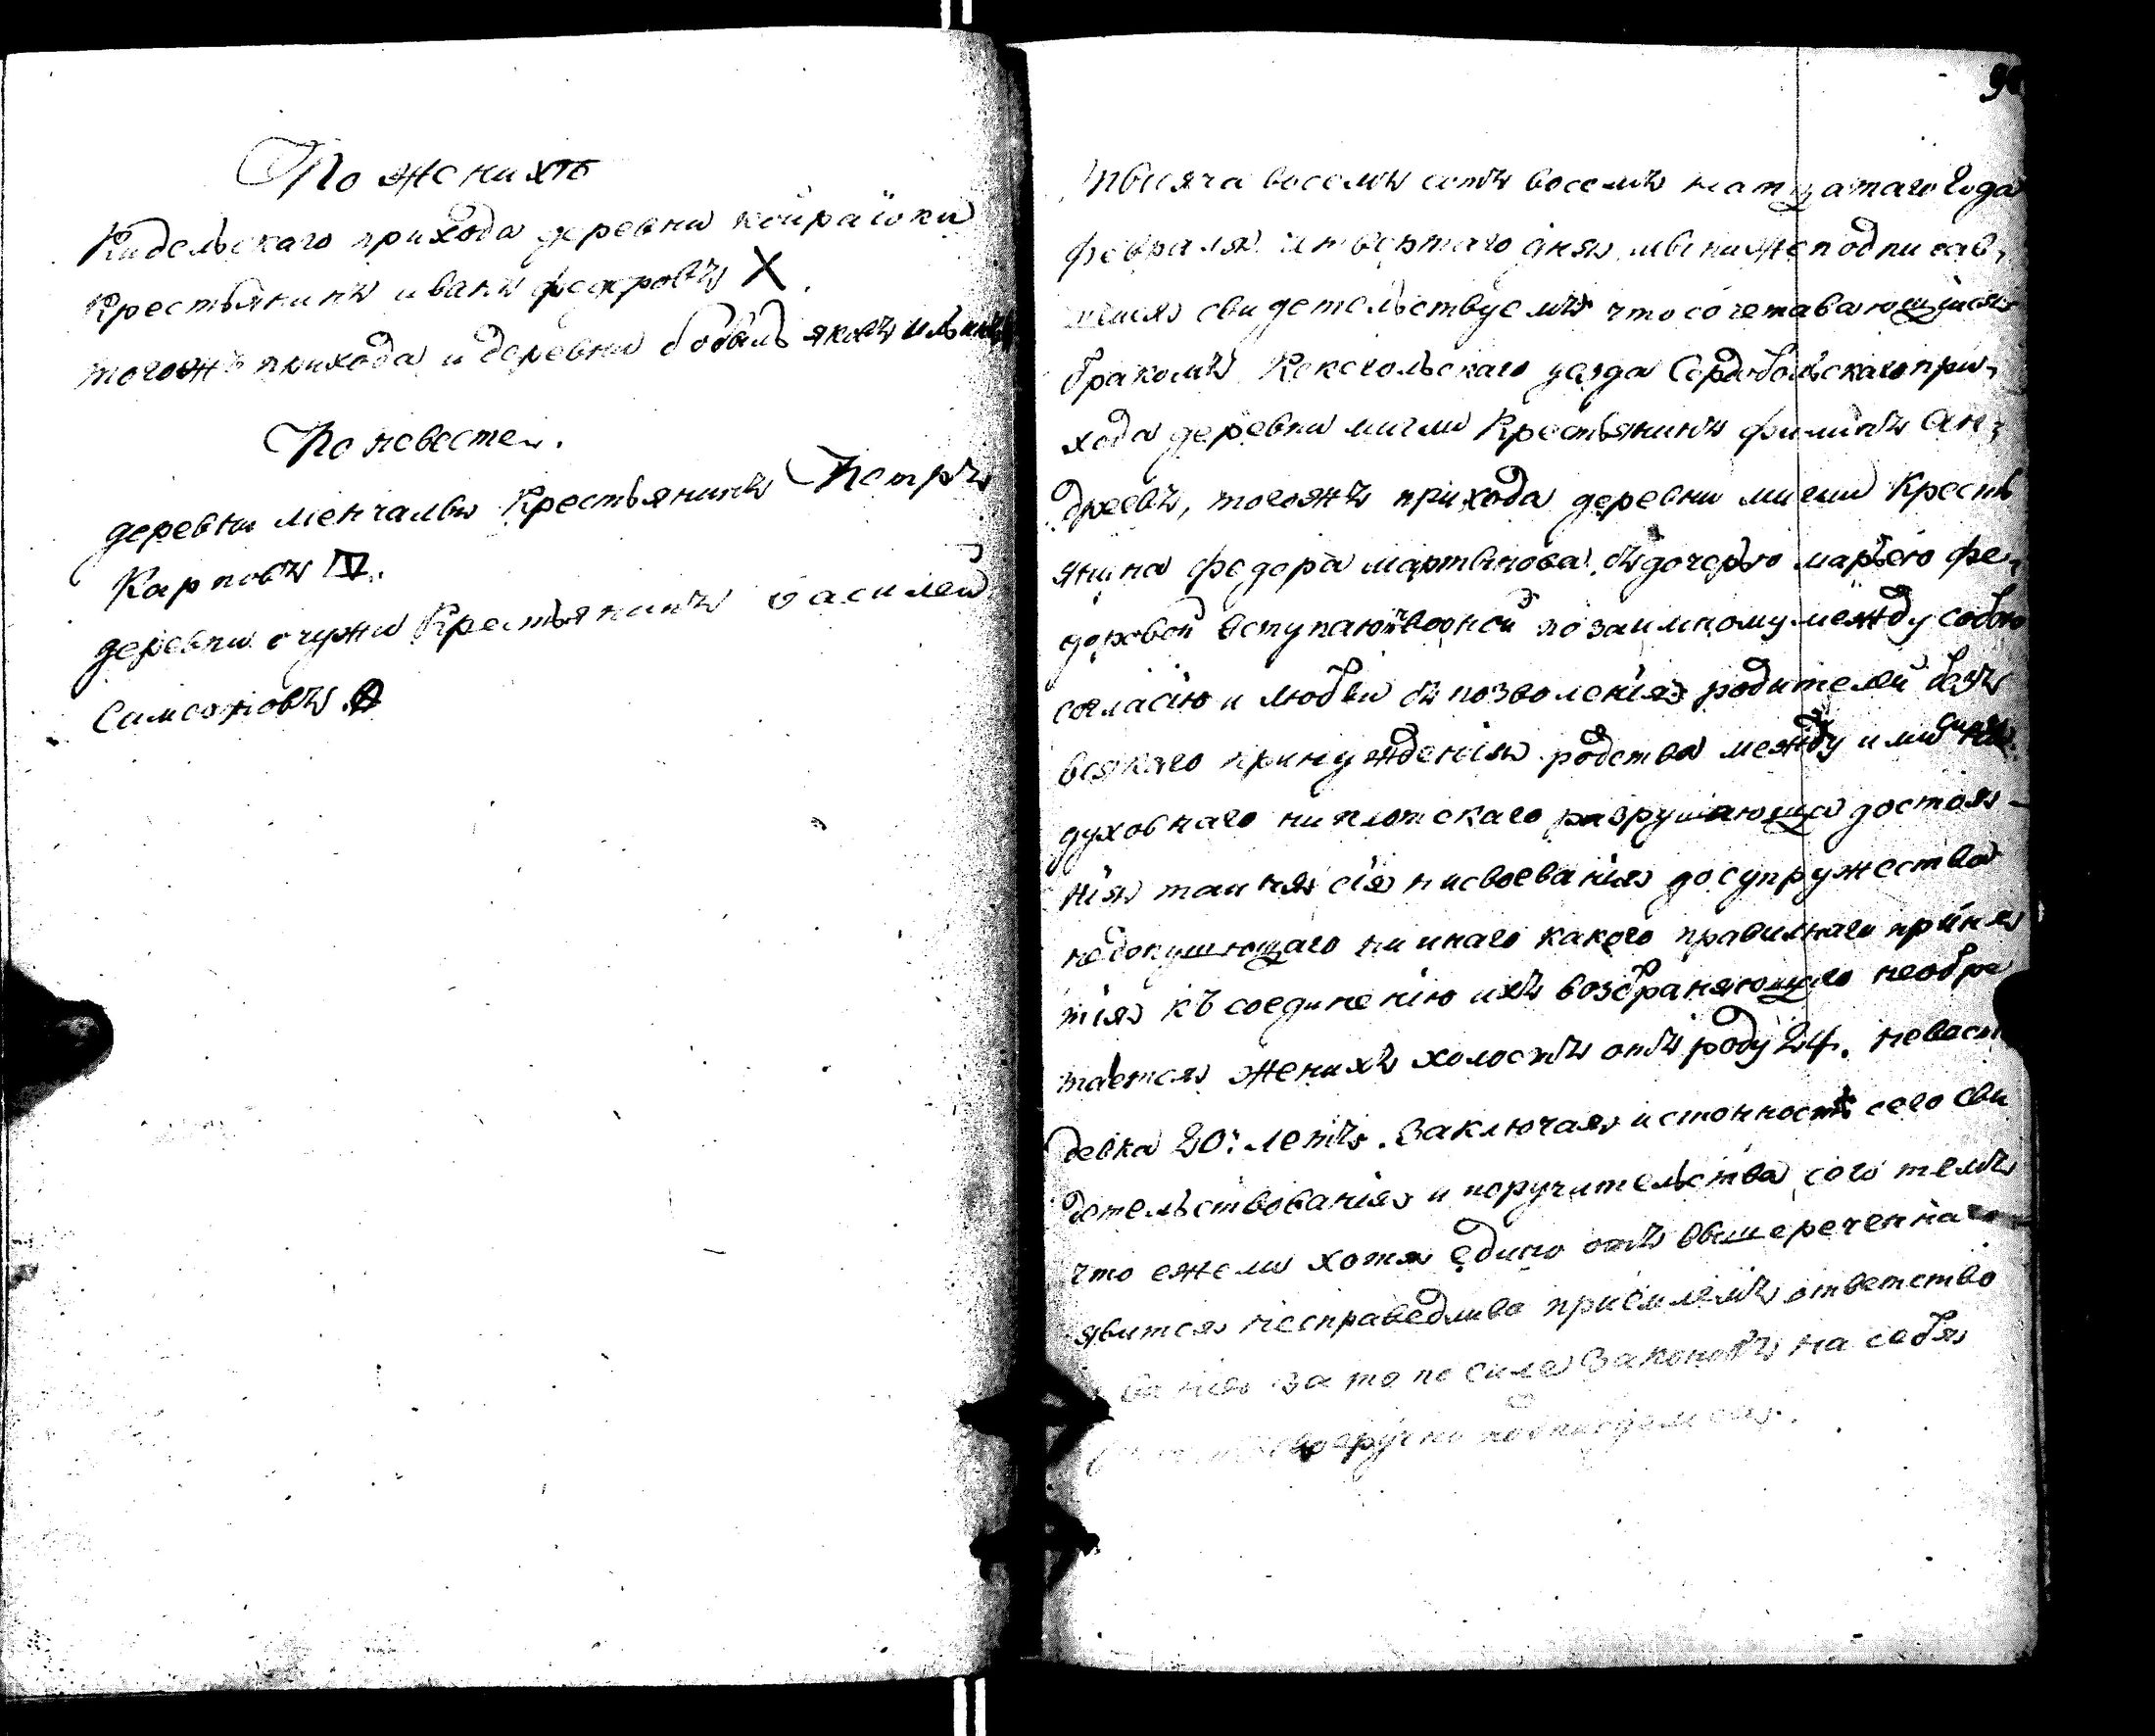 По женихѣ
Кидельскаго прихода деревни койраiоки
Крестьянинъ иванъ федоровъ X.
тогожъ прихода и деревни бобыль яковъ ильинъ
По невесте.
деревни менчалы Крестьянинъ Петръ
Карповъ
деревни очужи Крестьянинъ василей
Самсоновъ
тысяча восемъ сотъ восемъ натцатаго Года
февраля четвертаго дня мы нижеподписав,
шися свидетельствуемъ что сочетавающиися
бракомъ Кексгольскаго уезда Сердобольскаго при,
хода деревни мигли Крестьянинъ филипъ Ан,
дреевъ, тогожъ прихода деревни мигли Кресть
янина федора мартынова съ дочерью марьею фе,
доровой вступаютъ во оной по заимному между собою
согласiю и любви съ позволенiя родителей безъ
всякаго принужденiя родства между ими
духовнаго ни плотскаго разрушающа достоя
нiя таиня сiя ни своеванiя до супружества
недопушающаго ни инаго какого правильнаго приня
тiя къ соединенiю ихъ возбраняющаго необре
тается женихъ холостъ отъ роду 24. невеста
девка 20: летъ. Заключая истонность сего сви
детельствованiя и поручительства сего темъ
что ежели хотя едино отъ вышереченнаго
явится несправедливо прiемлемъ ответство
ванiя за то по силе Законовъ на себя
своеручно подписуемся.